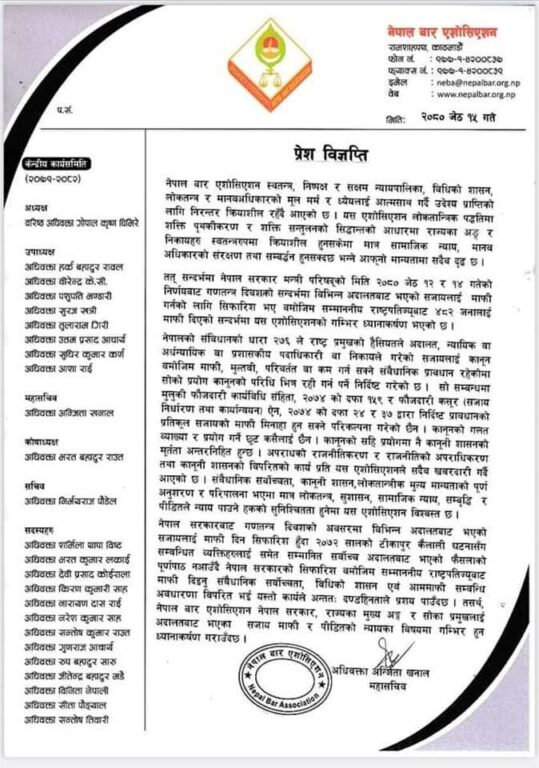 नेपाल बार एशोसिएशन
रामशाहपथ, काठमाडौं
फोन नं. : ९७७-१-४२००८३७
फ्याक्स नं. : ९७७-१-४२००८३९
इमेल : neba@nepalbar.org.np
वेब : www.nepalbar.org.np
प.सं.
मितिः २०८० जेठ १५ गते
प्रेश विज्ञप्ति
केन्द्रीय कार्यसमिति
(२०७९-२०८२)
अध्यक्ष
वरिष्ठ अधिवक्ता गोपाल कृष्ण घिमिरे
उपाध्यक्ष
अधिवक्ता हर्क बहादुर रावल
अधिवक्ता वीरेन्द्र के.सी.
अधिवक्ता पशुपति भण्डारी
अधिवक्ता सुरज खत्री
अधिवक्ता तुलाराम गिरी
अधिवक्ता उत्तम प्रसाद आचार्य
अधिवक्ता सुधिर कुमार कर्ण
अधिवक्ता आशा राई
महासचिव
अधिवक्ता अन्जिता खनाल
कोषाध्यक्ष
अधिवक्ता भरत बहादुर राउत
सचिव
अधिवक्ता निर्मलाराज पौडेल
सदस्यहरु
अधिवक्ता शर्मिला थापा विष्ट
अधिवक्ता भरत कुमार लकाई
अधिवक्ता देवी प्रसाद कोईराला
अधिवक्ता किरण कुमारी साह
अधिवक्ता नारायण दास राई
अधिवक्ता नरेश कुमार साह
अधिवक्ता सन्तोष कुमार राउत
अधिवक्ता गुणराज आचार्य
अधिवक्ता रुप बहादुर सारु
अधिवक्ता जीतेन्द्र बहादुर मडै
अधिवक्ता विनिता नेपाली
अधिवक्ता सीता पौड्याल
अधिवक्ता सन्तोष तिवारी
नेपाल बार एशोसिएशन स्वतन्त्र, निष्पक्ष र सक्षम न्यायपालिका, विधिको शासन,
लोकतन्त्र र मानवअधिकारको मूल मर्म र ध्येयलाई आत्मसाथ गर्दै उद्देश्य प्राप्तिको
लागि निरन्तर क्रियाशील रहँदै आएको छ । यस एशोसिएशन लोकतान्त्रिक पद्धतिमा
शक्ति पृथकीकरण र शक्ति सन्तुलनको सिद्धान्तको आधारमा राज्यका अङ्ग र
निकायहरु स्वतन्त्ररुपमा क्रियाशील हुनसकेमा मात्र सामाजिक न्याय, मानव
अधिकारको संरक्षण तथा सम्बर्द्धन हुनसक्दछ भन्ने आफ्नो मान्यतामा सदैव दृढ छ ।
तत् सन्दर्भमा नेपाल सरकार मन्त्री परिषद्को मिति २०८० जेठ १२ र १४ गतेको
निर्णयबाट गणतन्त्र दिवशको सन्दर्भमा विभिन्न अदालतबाट भएको सजायलाई माफी
गर्नको लागि सिफारिश भए वमोजिम सम्माननीय राष्ट्रपतिज्यूबाट ४८२ जनालाई
माफी दिएको सन्दर्भमा यस एशोसिएशनको गम्भिर ध्यानाकर्षण भएको छ ।
नेपालको संविधानको धारा २७६ ले राष्ट्र प्रमुखको हैसियतले अदालत, न्यायिक वा
अर्धन्यायिक वा प्रशासकीय पदाधिकारी वा निकायले गरेको सजायलाई कानून
वमोजिम माफी, मुल्तवी, परिवर्तत वा कम गर्न सक्ने संवैधानिक प्रावधान रहेकोमा
सोको प्रयोग कानूनको परिधि भित्र रही गर्न पर्ने निर्दिष्ट गरेको छ । सो सम्बन्धमा
मुलुकी फौजदारी कार्यविधि संहिता, २०७४ को दफा १५९ र फौजदारी कसूर (सजाय
निर्धारण तथा कार्यान्वयन) ऐन, २०७४ को दफा २४ र ३७ द्वारा निर्दिष्ट प्रावधानको
प्रतिकूल सजायको माफी मिनाहा हुन सक्ने परिकल्पना गरेको छैन । कानूनको गलत
व्याख्या र प्रयोग गर्ने छुट कसैलाई छैन । कानूनको सहि प्रयोगमा नै कानूनी शासनको
मूर्तता अन्तरनिहित हुन्छ । अपराधको राजनीतिकरण र राजनीतिको अपराधिकरण
तथा कानूनी शासनको विपरितको कार्य प्रति यस एशोसिएशनले सदैव खवरदारी गर्दै
आएको छ । संवैधानिक सर्वोच्चता, कानूनी शासन,लोकतान्त्रीक मूल्य मान्यताको पूर्ण
अनुशरण र परिपालना भएमा मात्र लोकतन्त्र, सुशासन, सामाजिक न्याय, सम्बृद्धि र
पीडितले न्याय पाउने हकको सुनिश्चितता हुनेमा यस एशोसिएशन विश्वस्त छ ।
नेपाल सरकारबाट गणतन्त्र दिवशको अवसरमा विभिन्न अदालतबाट भएको
सजायलाई माफी दिन सिफारिश हुँदा २०७२ सालको टीकापुर कैलाली घटनासँग
सम्बन्धित व्यक्तिहरुलाई समेत सम्मानित सर्वोच्च अदालतबाट भएको फैसलाको
पूर्णपाठ नआउँदै नेपाल सरकारको सिफारिश वमोजिम सम्माननीय राष्ट्रपतिज्यूबाट
माफी दिइनु संवैधानिक सर्वोच्चता, विधिको शासन एवं आममाफी सम्बन्धि
अवधारणा विपरित भई यस्तो कार्यले अन्ततः दण्डहिनताले प्रश्रय पाउदछ । तसर्थ,
नेपाल बार एशोसिएशन नेपाल सरकार, राज्यका मुख्य अङ्ग र सोका प्रमुखलाई
अदालतबाट भएका सजाय माफी र पीडितको न्यायका विषयमा गम्भिर हुन
ध्यानाकर्षण गराउँदछ ।
नेपाल बार एशोसिएशन
Nepal Bar Association
अधिवक्ता अन्जिता खनाल
महासचिव